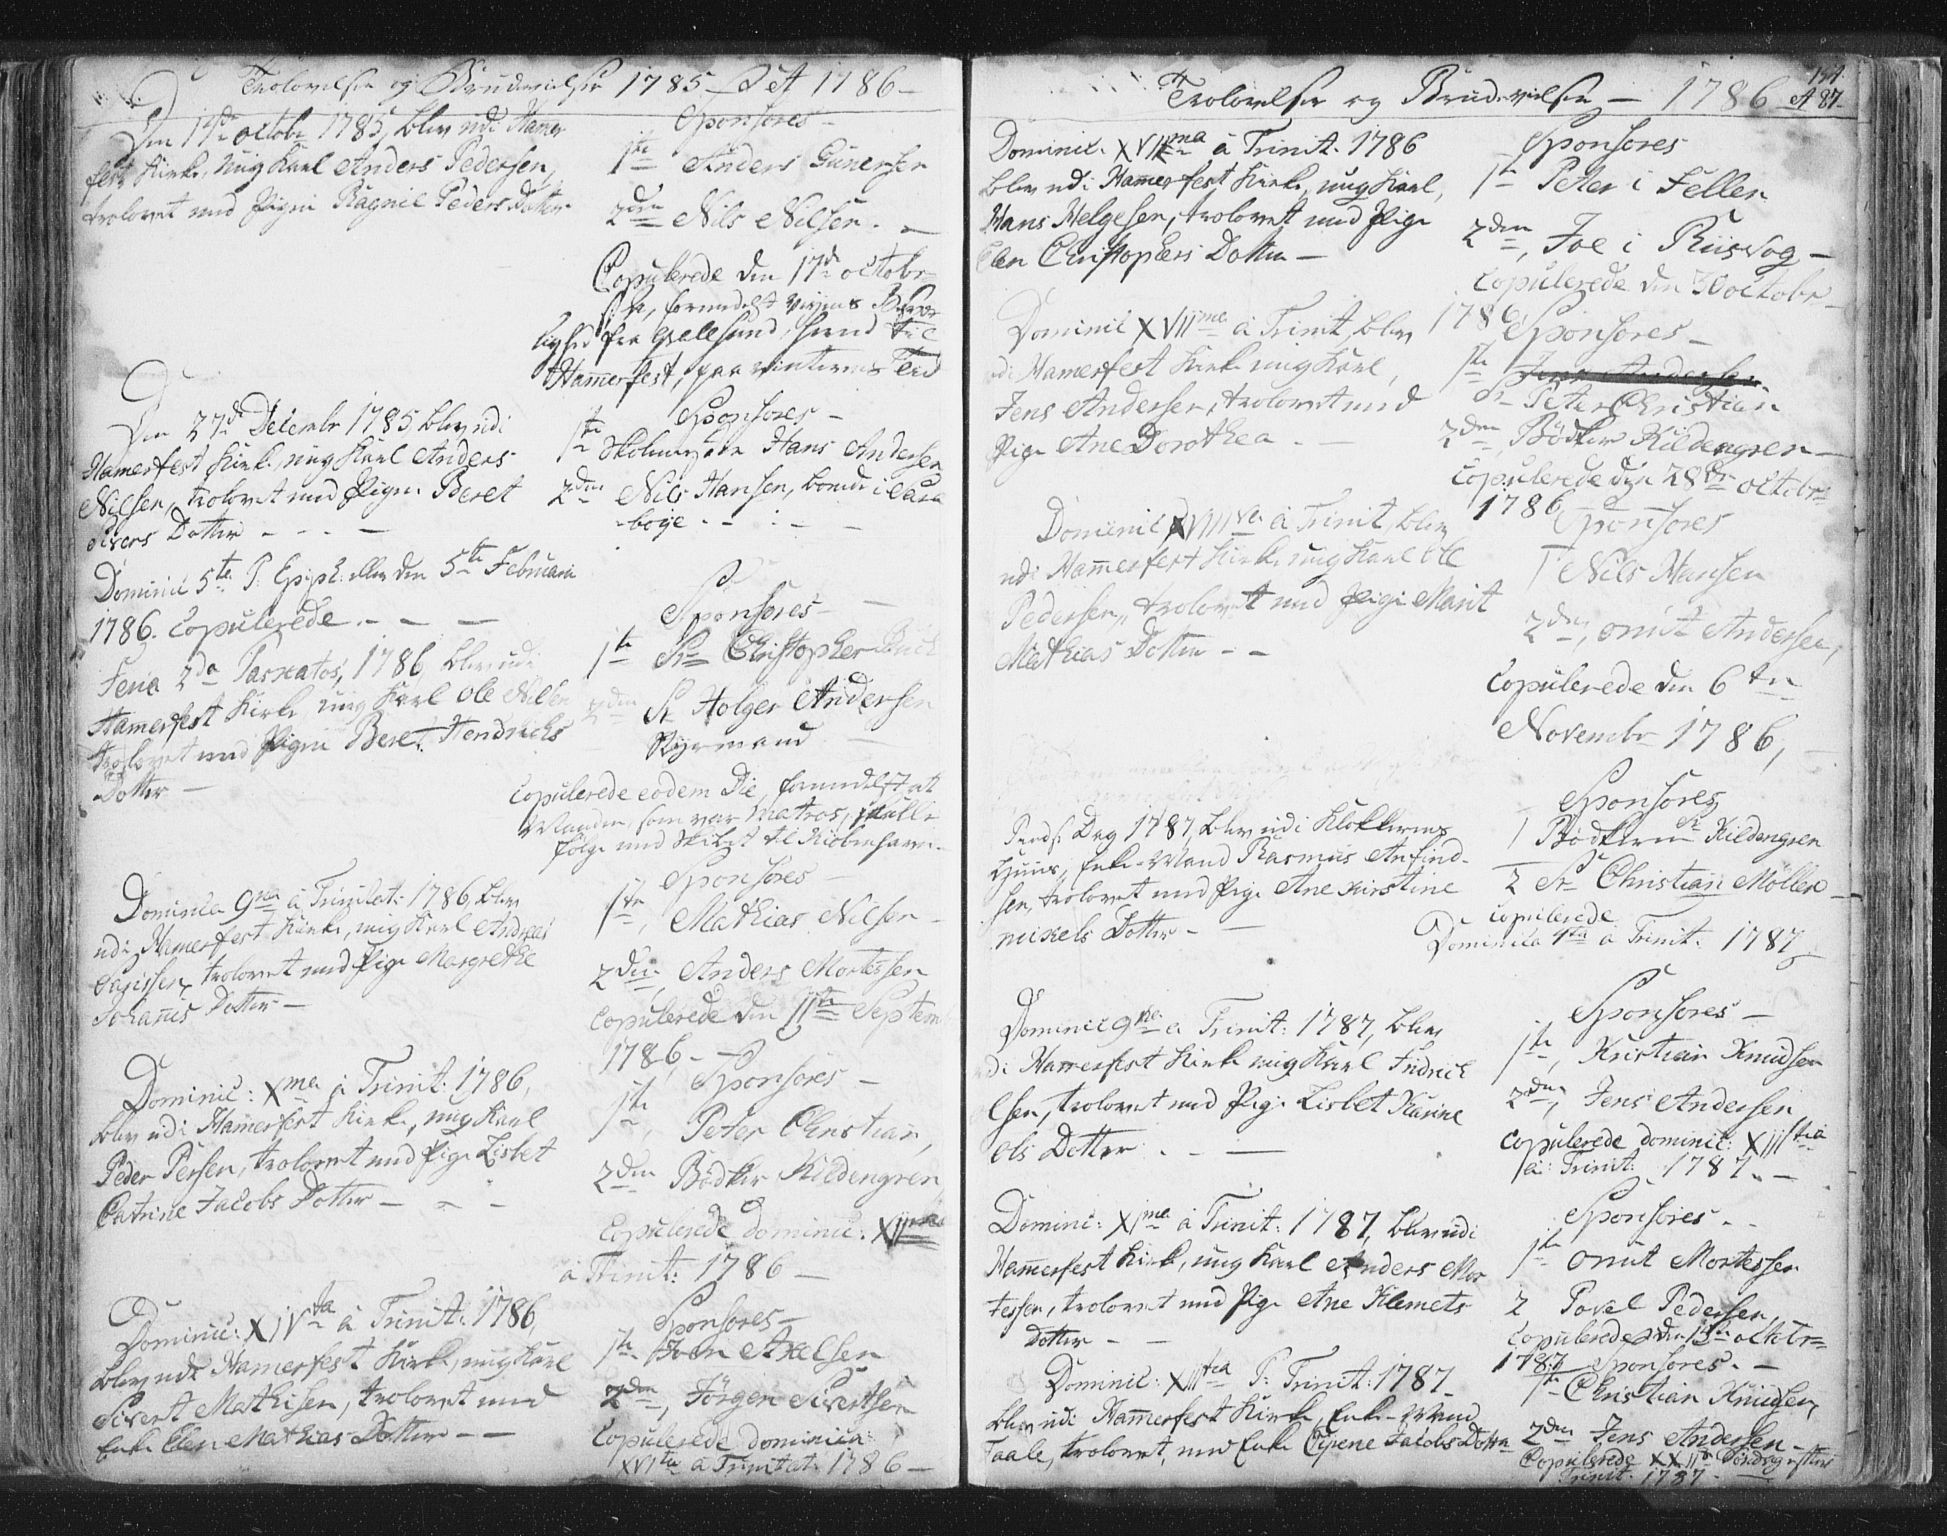 Trolovelser og Brudevielser 1785 et 1786
Sponsores
Den 14de octobr 1785, blev udi Hamer
fest Kirke, ung Karl Anders Pedersen,
trolovet med Pigen Ragnil Peders Datter
1ste Anders Gunersen
2den Nils Nilsen.
Copulerede den 17de octobr
formedelst Vejens Besvær
lighed fra Qvalsund hend til
Hamerfest, paa vinterens Tiid
Den 27de Decembr 1785 blev udi
Hamerfest Kirke ung Karl Anders
Nilsen, trolovet med Pigen Beret
Sivers Datter - - -
Sponsores
1ste Skolemester Hans Andersen
2den Nils Hansen, boende i Sara
boije
Dominic 5te P: Epiph: eller den 5te Februarii
1786. Copulerede. - - -
Sponsores
Feria 2da Paschatos, 1786 blev udi
Hamerfest Kirke ung Karl Ole Nilsen
trolovet med Pigen Beret Hendrichs
Dotter -
1ste Sr Christopher Buck
2den Sr Holger Andersen
Styrmand
Copulerede eodem Die, formedelst at
Manden, som var Matros, skulle
følge med Skibet til Kiøbenhavn.
Sponsores
Dominica 9na à Trinitat: 1786, blev
udi Hamerfest Kirke, ung Karl Andreas
trolovet med Pige Margrethe
Johanis Dotter -
1ste, Mathias Nilsen
2den, Anders Mortessen
Copulerede den 11te Septem
1786, -
Sponsores
Dominic: Xma à Trinit: 1786,
blev udi Hamerfest Kirke, ung Karl
Peder Persen, trolovet med Pige Lisbet
Catrine Jacobs Dotter -
1ste, Peter Christian,
2den Bødker Kildengren
Copulerede Dominic: XIIma
à Trinit: 1786 -
Sponsores
Dominic: XIVta à Trinit: 1786,
blev udi Hamerfest Kirke, ung Karl
Sivert Mathisen, trolovet med
Enke Elen Mathias Dotter - -
1ste John Axelsen
2den, Jørgen Sivertsen
Copulerede Dominica
XVIta à Trinitat: 1786 -
Trolovelser og Brudevielser - 1786 et 87
Dominic. XVIIma à Trinit. 1786
blev udi Hamerfest Kirke, ung Karl,
Hans Helgesen, trolovet med Pige
Elen Christophers Dotter -
Sponsores
1ste Peter i Fellen
2den, Joe i Riisvog -
Copulerede den 30 octobr
1786,
Dominic XVIIma à Trinit, blev
udi Hamerfest Kirke ung Karl,
Jens Andersen, trolovet med
Pige Ane Dorothea. -
Sponsores
1ste Jens Andersen
Sr Peter Christian
2den, Bødker Kildengren -
Copulerede den 28de octobr
1786
Dominic XVIIIva à Trinit, blev
udi Hamerfest Kirke ung Karl Ole
Pedersen, trolovet med Pige Marit
Mathias Dotter - -
Sponsores
1 Nils Hansen
2den, Omut Andersen,
Copulerede den 6ten
Novembr 1786,
Sponsores
Dag 1787, blev udi Klokkerens
Huus, Enke-Mand Rasmus Anfind-
sen, trolovet med Pige Ane Kirstine
Mikels Dotter -
1 Bødkeren Sr Kildengren
2 Sr Christian Möller
Copulerede
Dominica 4ta à Trinit. 1787
Dominic 9na à Trinit: 1787, blev
udi Hamerfest Kirke ung Karl Fridrich
lsen, trolovet med Pige Lisbet Karine
Ols Dotter
Sponsores -
1ste, Kristian Knudsen
2den, Jens Andersen
Copulerede Dominic: XIIItia
à: Trinit: 1787. -
Dominic: XIma à Trinit: 1787, blev udi
Hamerfest Kirke, ung Karl Anders Mor
tessen, trolovet med Pige Ane Klemets
Dotter -
Sponsores
1ste Omut Mortessen
2 Povel Pedersen,
Copulerede den 15de octobr
1787
Dominic: XIIItia P: Trinit: 1787
blev udi Hamerfest Kirke, Enke-Mand
Taale, trolovet, med Enke Jacobs Dotter
Sponsores. -
1ste Christian Knudsen,
2den Jens Andersen -
Copulerede XXIIde Søndag efter
Trinit. 1787.